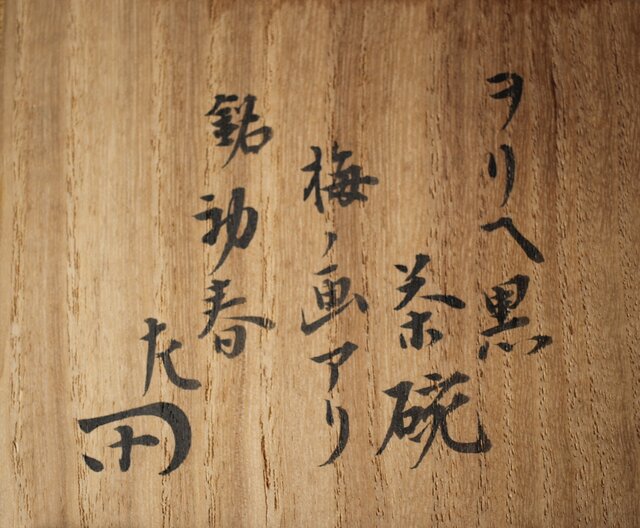 ヲリヘ黒
茶碗
梅ノ画アリ
銘 初春
左